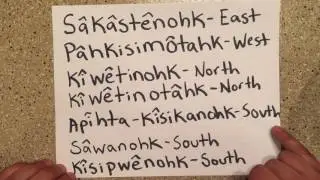 Sâkâstênohk - East
Pâhkisimôtahk - West
Kîwêtinohk - North
Kîwêtinotâhk - North
Apîhta-Kîsikanohk - South
Sâwanohk - South
Kîsipwênohk - South